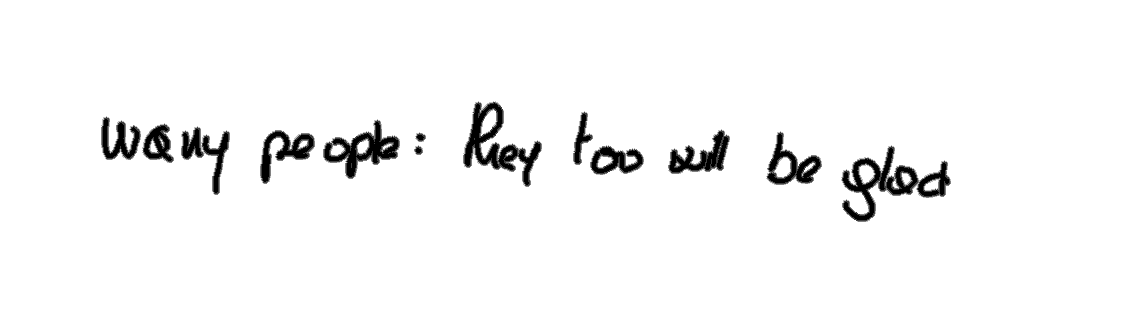 many people: They too will be glad